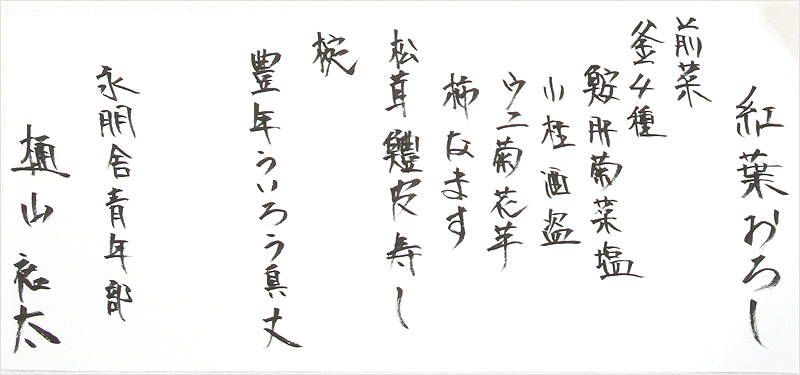 紅葉おろし
前菜
釜4種
鮟肝菊菜塩
小柱酒盗
ウニ菊花羊
柿なます
松茸鱧皮寿し
椀
豊年ういろう真丈
永朋舎青年部
樋山裕太